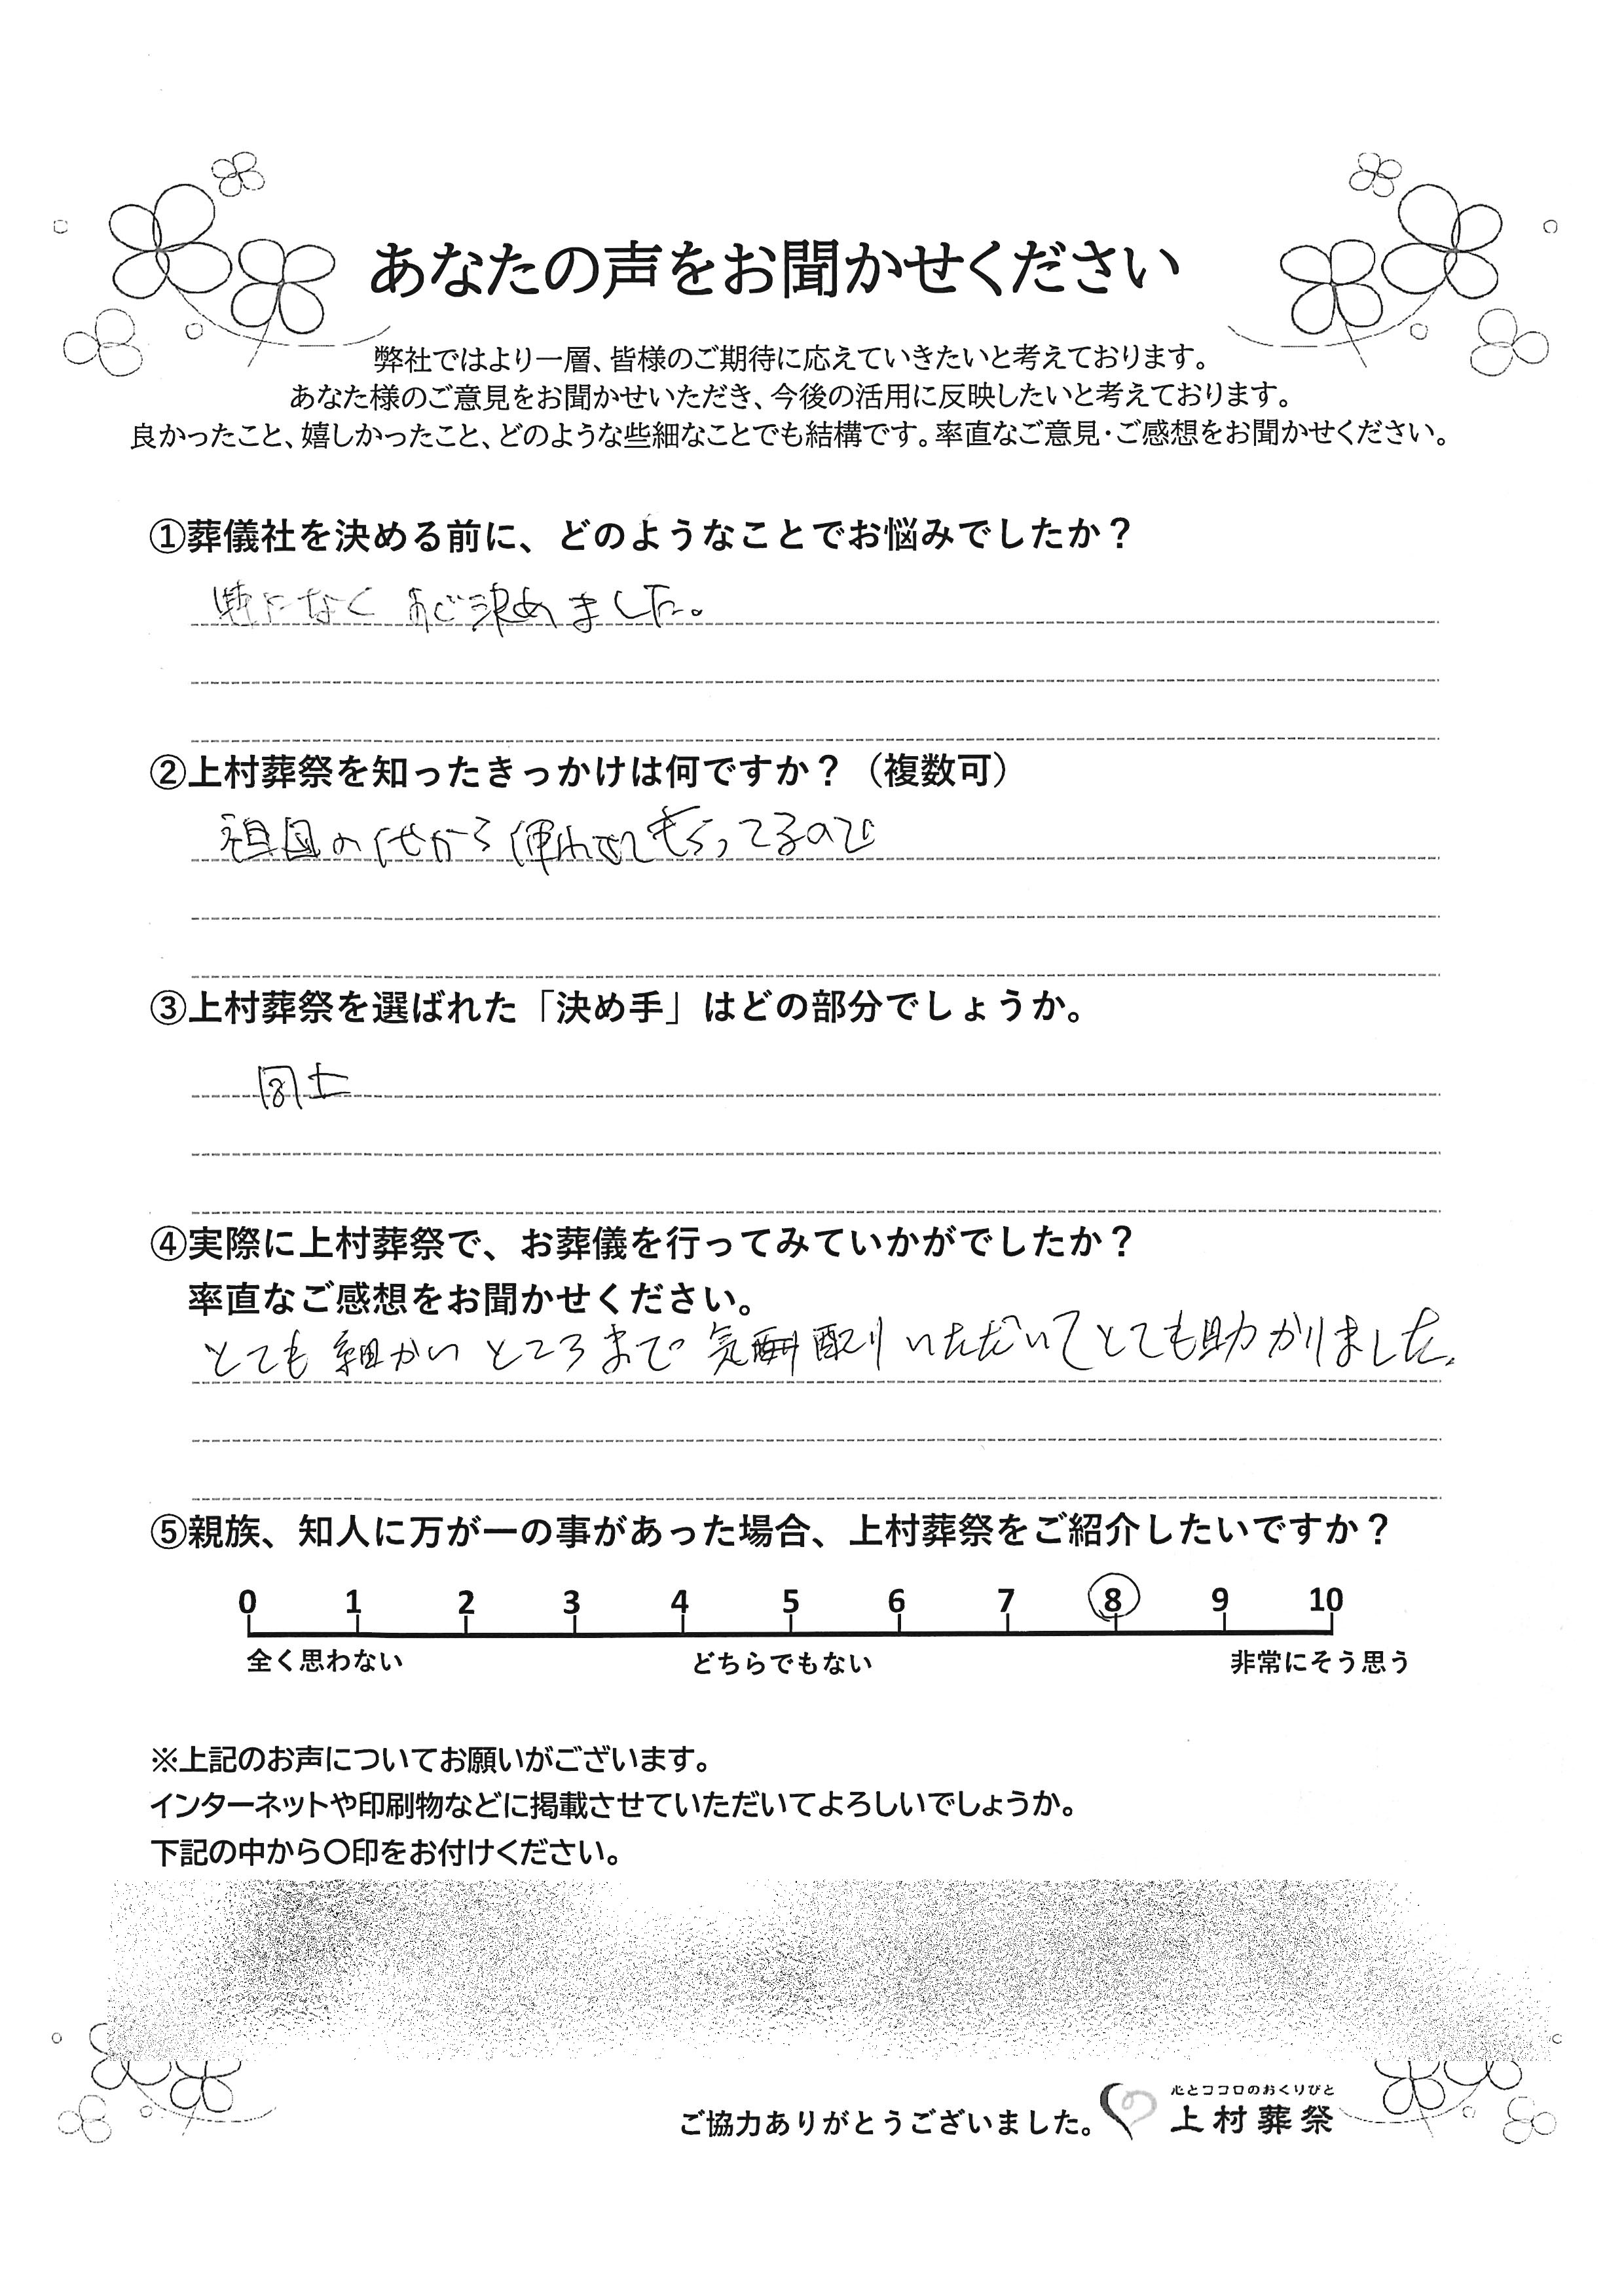 あなたの声をお聞かせください
弊社ではより一層、皆様のご期待に応えていきたいと考えております。
あなた様のご意見をお聞かせいただき、今後の活用に反映したいと考えております。
良かったこと、嬉しかったこと、どのような些細なことでも結構です。率直なご意見・ご感想をお聞かせください。
①葬儀社を決める前に、どのようなことでお悩みでしたか？
特になく 決めました。
②上村葬祭を知ったきっかけは何ですか？（複数可）
の代から使わせてもらってるので
③上村葬祭を選ばれた「決め手」はどの部分でしょうか。
同上
④実際に上村葬祭で、お葬儀を行ってみていかがでしたか？
率直なご感想をお聞かせください。
とても細かいところまで気配りいただいてとても助かりました。
⑤親族、知人に万が一の事があった場合、上村葬祭をご紹介したいですか？
0 1 2 3 4 5 6 7 8 9 10
全く思わない どちらでもない 非常にそう思う
※上記のお声についてお願いがございます。
インターネットや印刷物などに掲載させていただいてよろしいでしょうか。
下記の中から〇印をお付けください。
心とココロのおくりびと
ご協力ありがとうございました。 上村葬祭